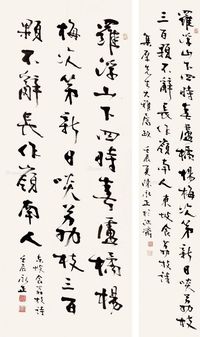 羅浮山下四時春盧橘楊梅次第新日啖荔枝
三百顆不辭長作嶺南人東坡食荔枝詩
先生大雅屬政壬辰夏陳永正於沚齋
羅浮山下四時春盧橘楊
梅次第新日啖荔枝三百
顆不辭長作嶺南人
東坡食荔枝詩
壬辰永正